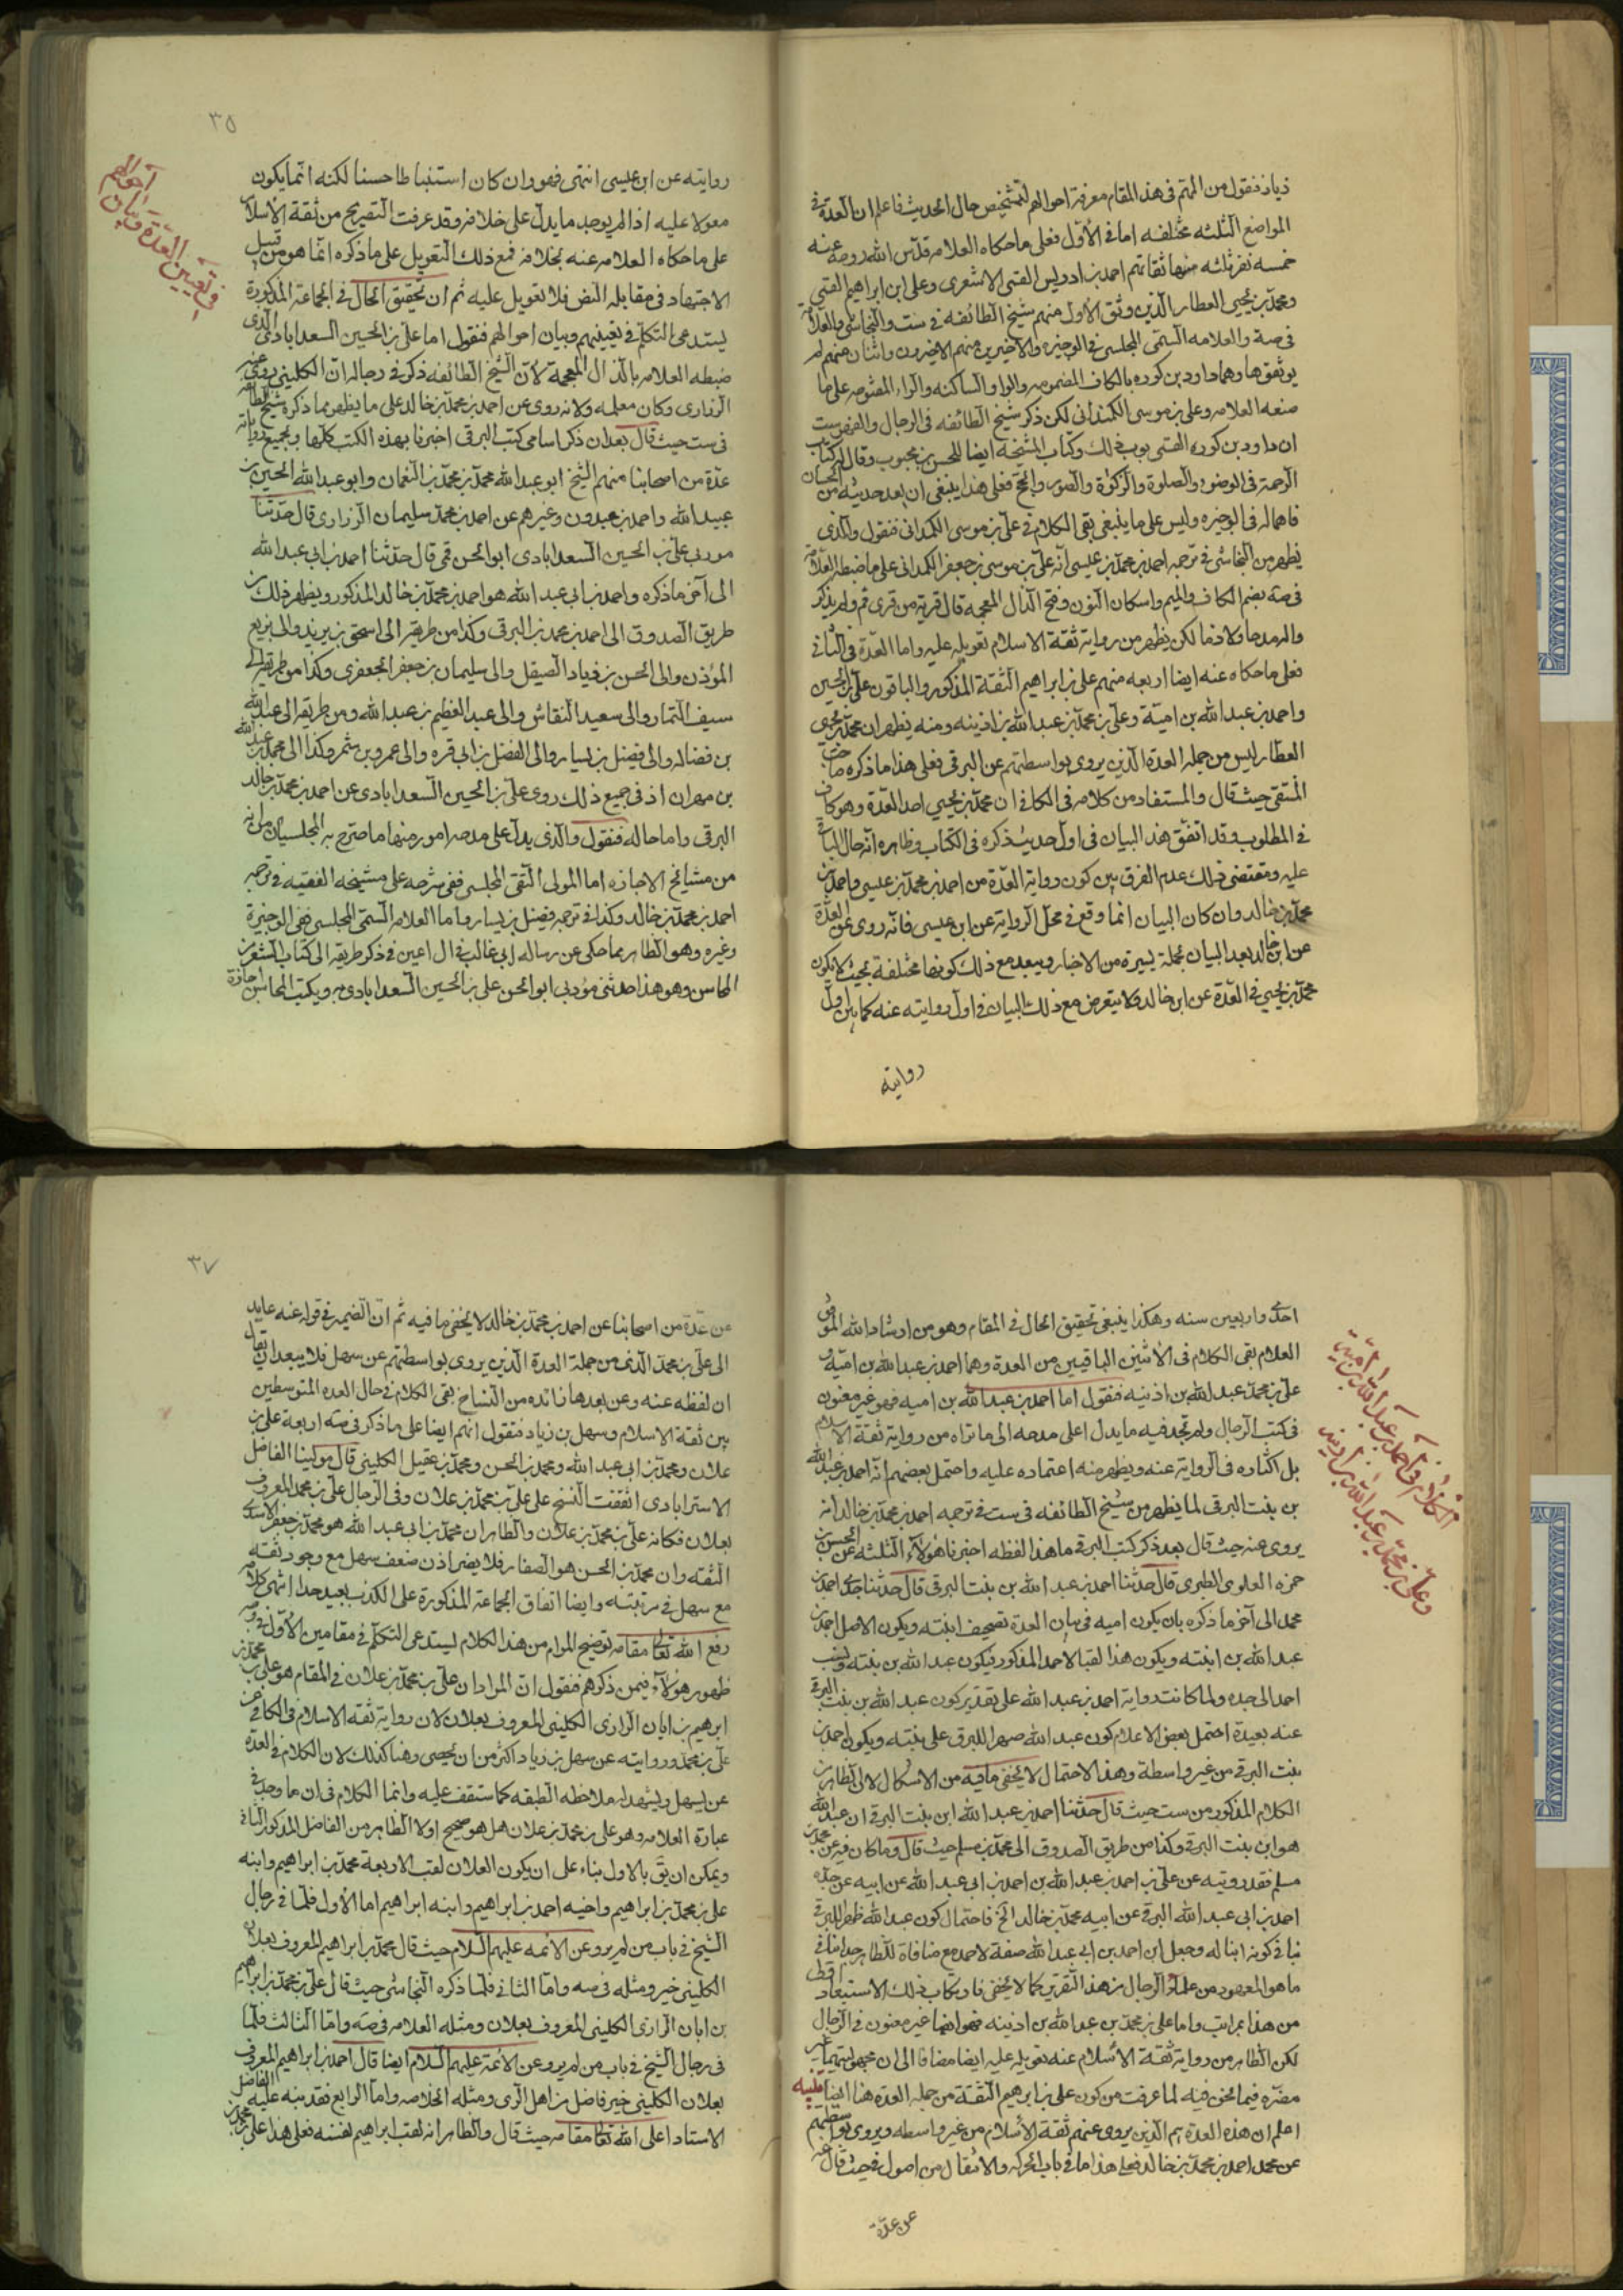 زياد فنقول من المهم في هذا المقام معرفة احوالهم لتشخيص حال الحديث فاعلم ان العدة في
المواضع الثلثه مختلفه اما في الاول فعلى ما حكاه العلامه قدس الله روحه عنه
خمسه نفر ثلثه منها ثقاتهم احمد بن ادريس القمى الاشعرى وعلى ابن ابراهيم القمى
ومحمد بن يحيى العطار الذين وثق الاول منهم شيخ الطائفه في ست والنجاشى والعلامه
في صه والعلامه السمى المجلسى في الوجيزه والاخيرين منهم الاخيرون واثنان منهم لم
يوثقوها وهما داود بن كوره بالكاف المضمومه والواو الساكنه والراء المفتوحه على ما
صنعه العلامه وعلى بن موسى الكمندانى لكن ذكر شيخ الطائفه في الرجال والفهرست
ان داود بن كوره القمى بوب كتاب المشيخه ايضا للحسن بن محبوب وقال له كتاب
الرحمة في الوضوء والصلوة والزكوة والصوم والحج فعلى هذا ينبغى ان يعد حديثه من الحسان
فاهماله في الوجيزه وليس على ما ينبغى بقى الكلام في على بن موسى الكمندانى فنقول والذى
يظهر من النجاشى في ترجمه احمد بن محمد بن عيسى انه على بن موسى بن جعفر الكمدانى على ما ضبطه العلامه
في صه بضم الكاف والميم واسكان النون وفتح الذال المعجمه قال قرية من قرى قم ولم يذكر
والمدحا ولا ذما لكن يظهر من رواية ثقة الاسلام تعويله عليه واما العدة في الثاني
فعلى ما حكاه عنه ايضا اربعه منهم على بن ابراهيم الثقة المذكور والباقون على بن الحسين
واحمد بن عبد الله بن امية وعلى بن محمد بن عبد الله بن اذينه ومنه يظهر ان محمد بن يحيى
العطار ليس من جمله العدة الذين يروى بواسطتهم عن البرقى فعلى هذا ما ذكره صاحب
المنتقى حيث قال والمستفاد من كلامه في الكافى ان محمد بن يحيى احد العدة وهو كاف
في المطلوب وقد اتفق هذا البيان في اول حديث ذكره في الكتاب وظاهره انه حال الباقى
عليه ومقتضى ذلك عدم الفرق بين كون رواية العدة من احمد بن محمد بن عيسى واحمد بن
محمد بن خالد وان كان البيان انما وقع في محل الرواية عن ابن عيسى فانه روى عن العدة
عن ابن خالد بعد البيان بجملة يسيرة من الاخبار ويبعد مع ذلك كونها مختلفة بحيث لا يكون
محمد بن يحيى في العدة عن ابن خالد ولا يتعرض مع ذلك للبيان في اول روايته عنه كما بين اول
روايته
٣٥
في تعيين العدة وبيان احوالهم
روايته عن ابن عيسى انتهى فهو وان كان استنباطا حسنا لكنه انما يكون
معولا عليه اذا لم يوجد ما يدل على خلافه وقد عرفت التصريح من ثقة الاسلام
على ما حكاه العلامه عنه بخلافه فمع ذلك التعويل على ما ذكره انما هو من قبيل
الاجتهاد في مقابله النص فلا تعويل عليه ثم ان تحقيق الحال في الجماعة المذكورة
يستدعى التكلم في تعيينهم وبيان احوالهم فنقول اما على بن الحسين السعدابادى الذى
ضبطه العلامه بالذال المعجمة لان الشيخ الطائفه ذكر في رجاله ان الكلينى روى عنه
الزرارى وكان معلمه ولانه روى عن احمد بن محمد بن خالد على ما يظهر مما ذكره شيخ الطائفه
في ست حيث قال بعد ان ذكر اسامى كتب البرقى اخبرنا بهذه الكتب كلها وبجميع رواياته
عدة من اصحابنا منهم الشيخ ابو عبد الله محمد بن محمد بن النعمان وابو عبد الله الحسين بن
عبيد الله واحمد بن عبدون وغيرهم عن احمد بن محمد سليمان الزرارى قال حدثنا
مودبى على بن الحسين السعدابادى ابو الحسن قمى قال حدثنا احمد بن ابى عبد الله
الى آخر ما ذكره واحمد بن ابى عبد الله هو احمد بن محمد بن خالد المذكور ويظهر ذلك من
طريق الصدوق الى احمد بن محمد بن البرقى وكذا من طريقه الى اسحق بن يزيد والى بزيع
المؤذن والى الحسن بن زياد الصيقل والى سليمان بن جعفر الجعفرى وكذا من طريقه الى
سيف التمار والى سعيد النقاش والى عبد العظيم بن عبد الله ومن طريقه الى عبد الله
بن فضاله والى فضيل بن يسار والى الفضل بن ابى قره والى عمرو بن شمر وكذا الى محمد بن عبد الله
بن مهران اذ في جميع ذلك روى على بن الحسين السعدابادى عن احمد بن محمد بن خالد
البرقى واما حاله فنقول والذى يدل على مدحه امور منها ما صرح به المجلسيان من انه
من مشايخ الاجازه اما المولى التقى المجلسى ففى شرحه على مشيخه الفقيه في ترجمه
احمد بن محمد بن خالد وكذا في ترجمه فضيل بن يسار واما العلامه السمى المجلسى ففى الوجيزة
وغيره وهو الظاهر مما حكى عن رساله ابى غالب في ال اعين في ذكر طريقه الى كتاب الشعر من
المحاسن وهو هذا حدثنى مؤدبى ابو الحسن على بن الحسين السعدابادى به وبكتب المحاسن اجازة
احدى واربعين سنه وهكذا ينبغى تحقيق الحال في المقام وهو من ارشاد الله الموفق
العلام بقى الكلام في الاثنين الباقيين من العدة وهما احمد بن عبد الله بن امية و
على بن محمد عبد الله بن اذينه فنقول اما احمد بن عبد الله بن اميه فهو غير معنون
في كتب الرجال ولم تجد فيه ما يدل على مدحه الى ما تراه من رواية ثقة الاسلام
بل اكثاره في الرواية عنه ويظهر منه اعتماده عليه واحتمل بعضهم انه احمد بن عبد الله
بن بنت البرقى لما يظهر من شيخ الطائفه في ست في ترجمه احمد بن محمد بن خالد انه
يروى عنه حيث قال بعد ذكر كتب البرقى ما هذا لفظه اخبرنا هؤلاء الثلثه عن الحسن بن
حمزه العلوى الطبرى قال حدثنا احمد بن عبد الله بن بنت البرقى قال حدثنا جدى احمد بن
محمد الى آخر ما ذكره بان يكون اميه في بيان العدة تصحيف ابنته ويكون الاصل احمد بن
عبد الله بن ابنته ويكون هذا لقبا لاحمد المذكور فيكون عبد الله بن بنته ونسب
احمد الى جده ولما كانت رواية احمد بن عبد الله على تقدير كون عبد الله بن بنت البرقى
عنه بعيدة احتمل بعض الاعلام كون عبد الله صهرا للبرقى على بنته ويكون احمد بن
بنت البرقى من غير واسطة وهذا الاحتمال لا يخفى ما فيه من الاشكال لان الظاهر من
الكلام المذكور من ست حيث قال حدثنا احمد بن عبد الله ابن بنت البرقى ان عبد الله
هو ابن بنت البرقى وكذا من طريق الصدوق الى محمد بن مسلم حيث قال وما كان فيه عن محمد بن
مسلم فقد رويته عن على بن احمد بن عبد الله بن احمد بن ابى عبد الله عن ابيه عن جده
احمد بن ابى عبد الله البرقى عن ابيه محمد بن خالد الخ فاحتمال كون عبد الله ظهرا للبرقى
ينافى كونه ابنا له وجعل ابن احمد بن ابى عبد الله صفة لاحمد مع منافاة للظاهر جدا مناف
ما هو المعهود من علماء الرجال من هذا التقرير كما لا يخفى فارتكاب ذلك الاستبعاد
من هذا بمراتب واما على بن محمد بن عبد الله بن اذينه فهو ايضا غير معنون في الرجال
لكن الظاهر من رواية ثقة الاسلام عنه تعويله عليه ايضا مضافا الى ان مجهوليتهما غير
مضره فيما نحن فيه لما عرفت من كون على بن ابرهيم الثقة من جمله العدة هنا ايضا تنبيه
اعلم ان هذه العدة هم الذين يروى عنهم ثقة الاسلام من غير واسطه ويروى بواسطتهم
عن محمد احمد بن محمد بن خالد فعلى هذا ما في باب الحركه والانتقال من اصول في حيث قال عنه
عن عدة
الكلام في احمد بن عبد الله بن امية
وعلى بن محمد بن عبد الله بن اذينه
٣٧
عن عدة من اصحابنا عن احمد بن محمد بن خالد لا يخفى ما فيه ثم ان الضمير في قوله عنه عايد
الى على بن محمد الذى من جملة العدة الذين يروى بواسطتهم عن سهل فلا يبعد ان يقال
ان لفظه عنه وعن بعدها زائده من النساخ بقى الكلام في حال العده المتوسطين
بين ثقة الاسلام وسهل بن زياد فنقول انهم ايضا على ما ذكر في صه اربعة على بن
علان ومحمد بن ابى عبد الله ومحمد بن الحسن ومحمد بن عقيل الكلينى قال مولينا الفاضل
الاسترابادى اتفقت النسخ على على بن محمد بن علان وفى الرجال على بن محمد المعروف
بعلان فكانه على بن محمد بن علان والظاهر ان محمد بن ابى عبد الله هو محمد بن جعفر الاسدى
الثقه وان محمد بن الحسن هو الصفار فلا يضر اذن ضعف سهل مع وجود ثقه
مع سهل في مرتبته وايضا اتفاق الجماعة المذكورة على الكذب بعيد جدا انتهى كلامه
رفع الله تعالى مقامه توضيح المرام من هذا الكلام يستدعى التكلم في مقامين الاول في وجه
ظهور هؤلاء فيمن ذكرهم فنقول ان المراد ان على بن محمد بن علان في المقام هو على بن محمد بن
ابرهيم بن ابان الرازى الكلينى المعروف بعلان لان رواية ثقه الاسلام في الكافى عن
على بن محمد وروايته عن سهل بن زياد اكثر من ان يحصى وهنا كذلك لان الكلام في العدة
عن سهل ويشهد له ملاحظه الطبقه كما ستقف عليه وانما الكلام في ان ما وجد في
عبارة العلامه وهو على بن محمد بن علان هل هو صحيح اولا الظاهر من الفاضل المذكور الثانى
ويمكن ان يق بالاول بناء على ان يكون العلان لقب الاربعة محمد بن ابراهيم وابنه
على بن محمد بن ابراهيم واخيه احمد بن ابراهيم وابنه ابراهيم اما الاول فلما في رجال
الشيخ في باب من لم يرو عن الائمه عليهم السلام حيث قال محمد بن ابراهيم المعروف بعلان
الكلينى خير ومثله في صه واما الثانى فلما ذكره النجاشى حيث قال على بن محمد بن ابراهيم
بن ابان الرازى الكلينى المعروف بعلان ومثله العلامه في صه واما الثالث فلما
في رجال الشيخ في باب من لم يرو عن الائمة عليهم السلام ايضا قال احمد بن ابراهيم المعروف
بعلان الكلينى خير فاضل من اهل الرى ومثله الخلاصه واما الرابع فقد نبه عليه الفاضل
الاستاد اعلى الله تعالى مقامه حيث قال والظاهر انه لقب ابراهيم نفسه فعلى هذا على بن محمد بن